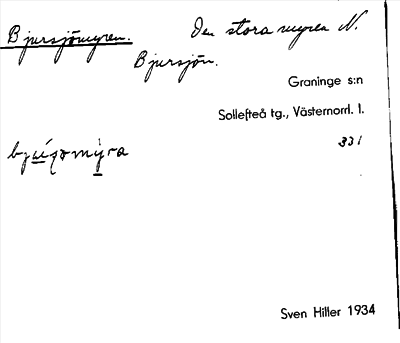 Bjursjömyren. Den stora myren N.
Bjursjön.
Graninge s:n
Sollefteå tg., Västernorrl. l.
331
Sven Hiller 1934